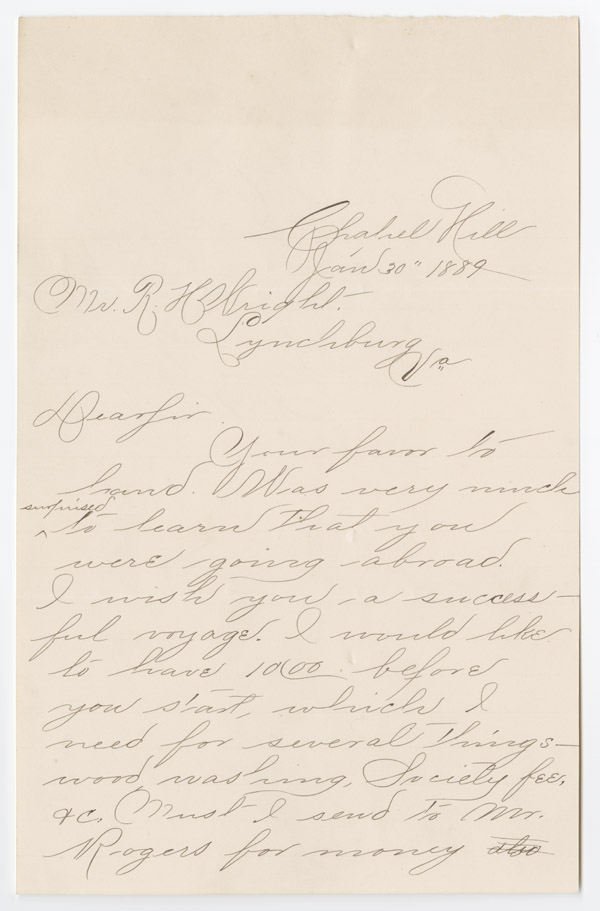 Chapel Hill
Jan 30" 1889
Mr. R. H. Wright.
Lynchburg
Va
Dear Sir.
Your favor to
hand. Was very much
surprised
^ to learn that you
were going abroad.
I wish you a success-
ful voyage. I would like
to have 10.00 before
you start, which I
need for several things-
wood washing, Society fee,
&c. Must I send to Mr.
Rogers for money also